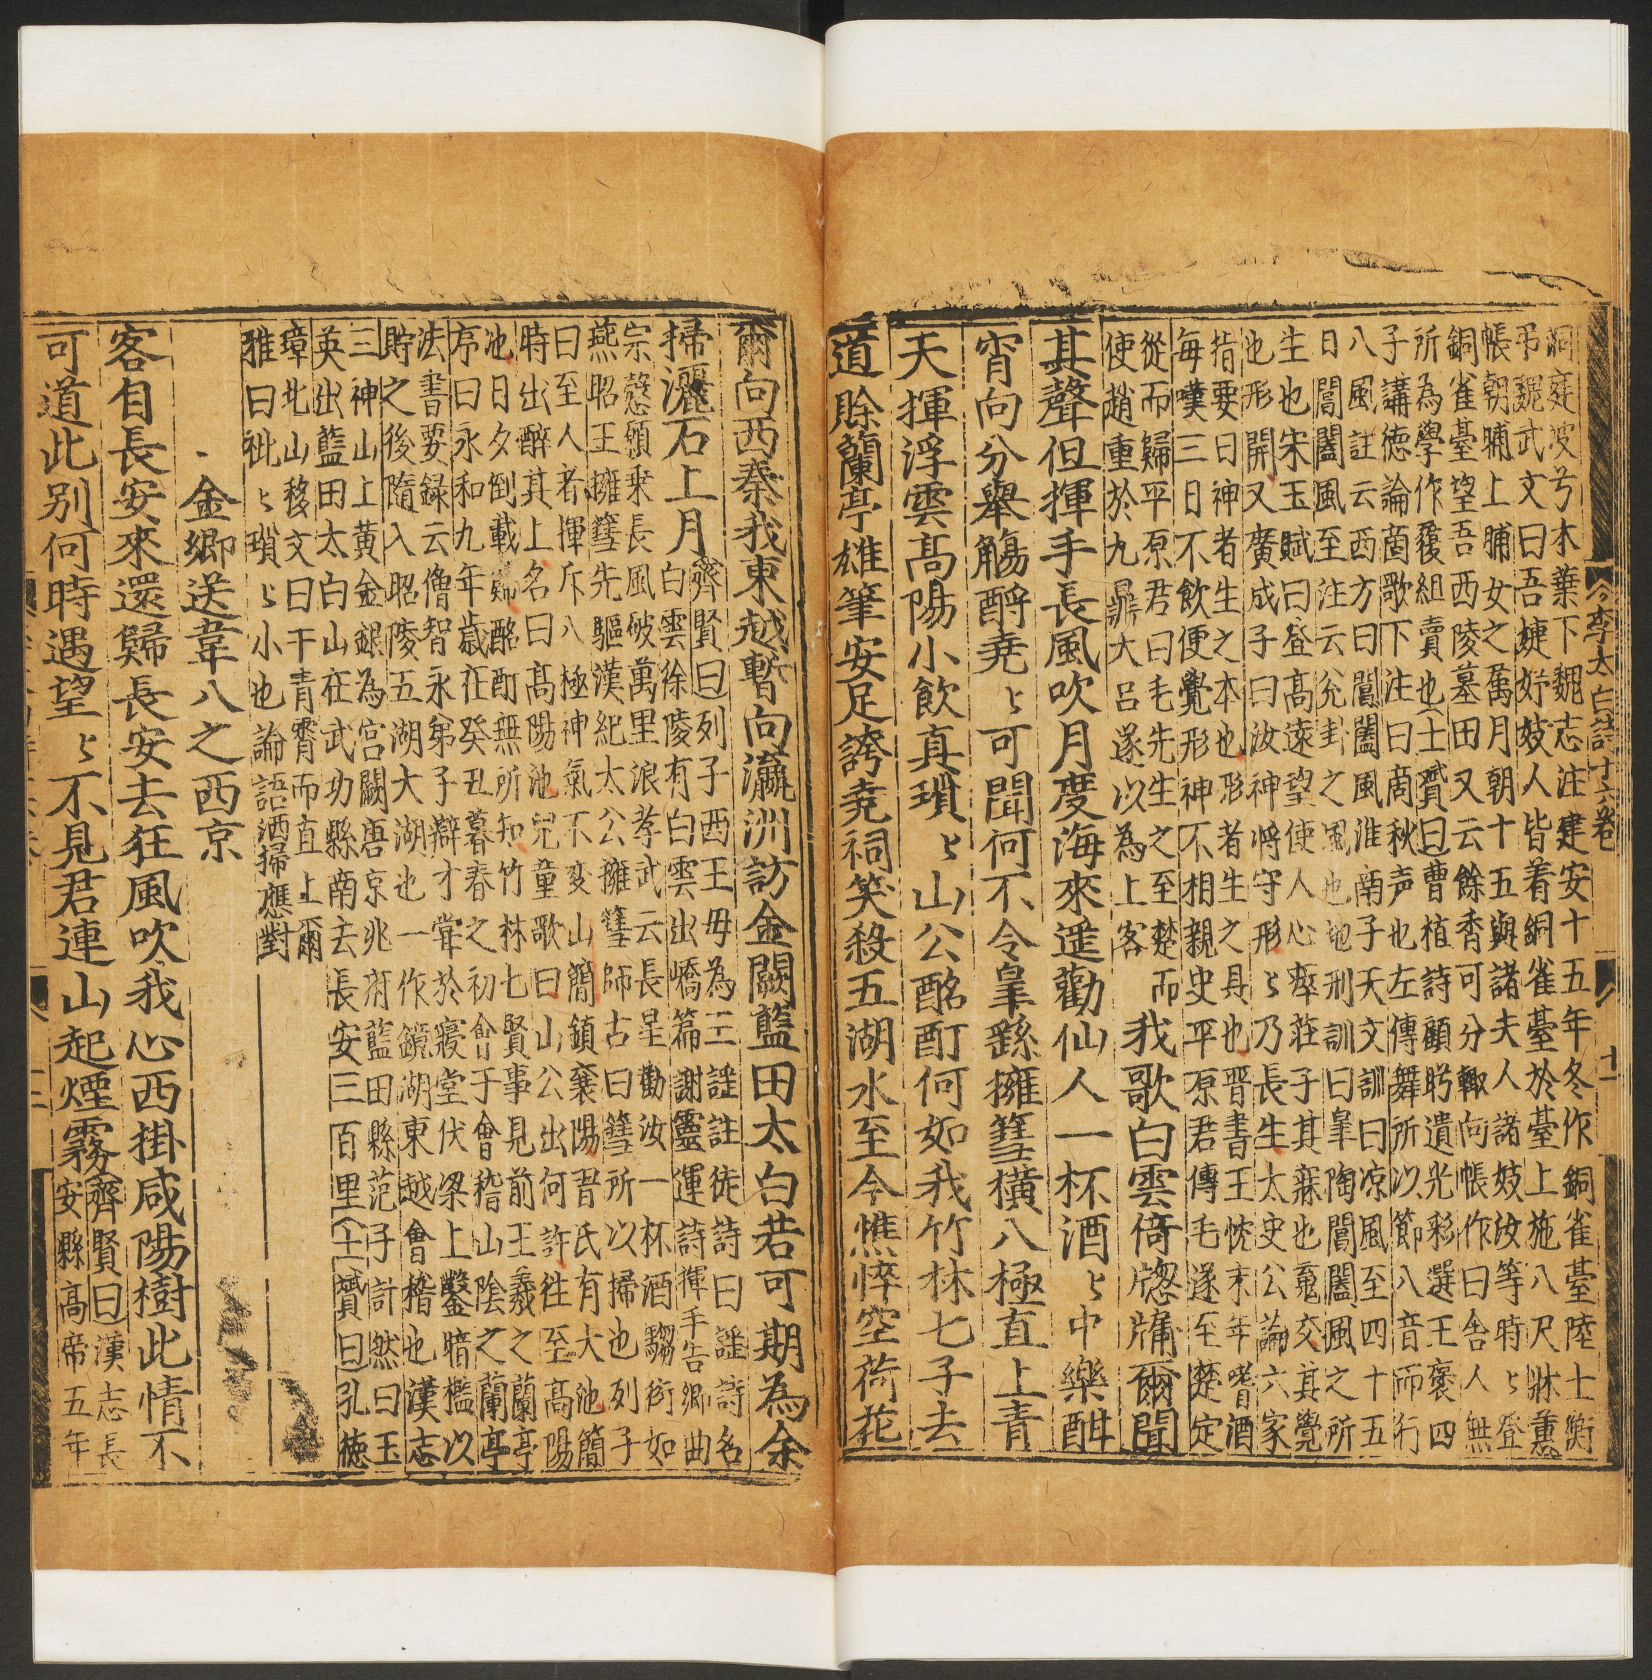 洞庭波兮木葉下魏志注建安十五年冬作銅雀臺陸士衡
吊魏武文曰吾婕妤妓人皆着銅雀臺於臺上施八尺牀蕙
帳朝晡上脯女之萬月朝十五與諸夫人諸妓汝等時〻登
銅雀臺望吾西陵墓田又云餘香可分輙向帳作曰舍人無
所為學作履組賣也士贇曰曹植詩顧眄遺光彩選王褒四
子講徳論啇歌下注曰啇秋声也左傳舞所以節八音而行
八風註云西方曰閶闔風淮南子天文訓曰凉風至四十五
日閶闔風至注云兊卦之風也地刑訓曰皐陶閶闔風之所
生也宋玉賦曰登高遠望使人心瘁莊子其寐也䰟交其覺
也形開又廣成子曰汝神將守形〻乃長生太史公論六家
指要曰神者生之本也形者生之具也晋書王忱末年嗜酒
每嘆三日不飲便覺形神不相親史平原君傳毛遂至楚定
從而歸平原君曰毛先生之至楚而
使趙重於九鼎大吕遂以為上客
我歌白雲倚牕牗爾聞
其聲但揮手長風吹月度海來遥勸仙人一杯酒〻中樂酣
宵向分舉觴酹堯〻可聞何不令皐繇擁篲橫八極直上青
天揮浮雲高陽小飲真瑣〻山公酩酊何如我竹林七子去
道賖蘭亭雄筆安足誇堯祠笑殺五湖水至今憔悴空荷花
李太白詩十六卷
十一
爾向西秦我東越暫向瀛洲訪金闕藍田太白若可期為余
掃灑石上月
齊賢曰列子西王毋為王謡註徒詩曰謡詩名
白雲徐陵有白雲出嶠篇謝靈運詩揮手告鄉曲
宗慤願乗長風破萬里浪孝武云長星勸汝一杯酒騶衍如
燕昭王擁篲先驅漢紀太公擁篲師古曰篲所以掃也列子
曰至人者揮斥八極神氣不变山簡鎮襄陽習氏有大池簡
時出醉其上名曰高陽池兒童歌曰山公出何許徃至高陽
池日夕倒載歸酩酊無所知竹林七賢事見前王羲之蘭亭
序曰永和九年歲在癸丑暮春之初會于會稽山隂之蘭亭
法書要録云僧智永弟子辯才甞於寢堂伏梁上鑿暗檻以
貯之後隋入昭陵五湖大湖也一作鏡湖東越會稽也漢志
三神山上黄金銀為宫闕唐京兆府藍田縣范子計然曰玉
英出藍田太白山在武功縣南去長安三百里士贇曰孔徳
璋北山移文曰干青霄而直上爾
雅曰佌〻瑣〻小也論語洒掃應對
金鄉送韋八之西京
客自長安來還歸長安去狂風吹我心西掛咸陽樹此情不
可道此别何時遇望〻不見君連山起煙霧
齊賢曰漢志長
安縣高帝五年